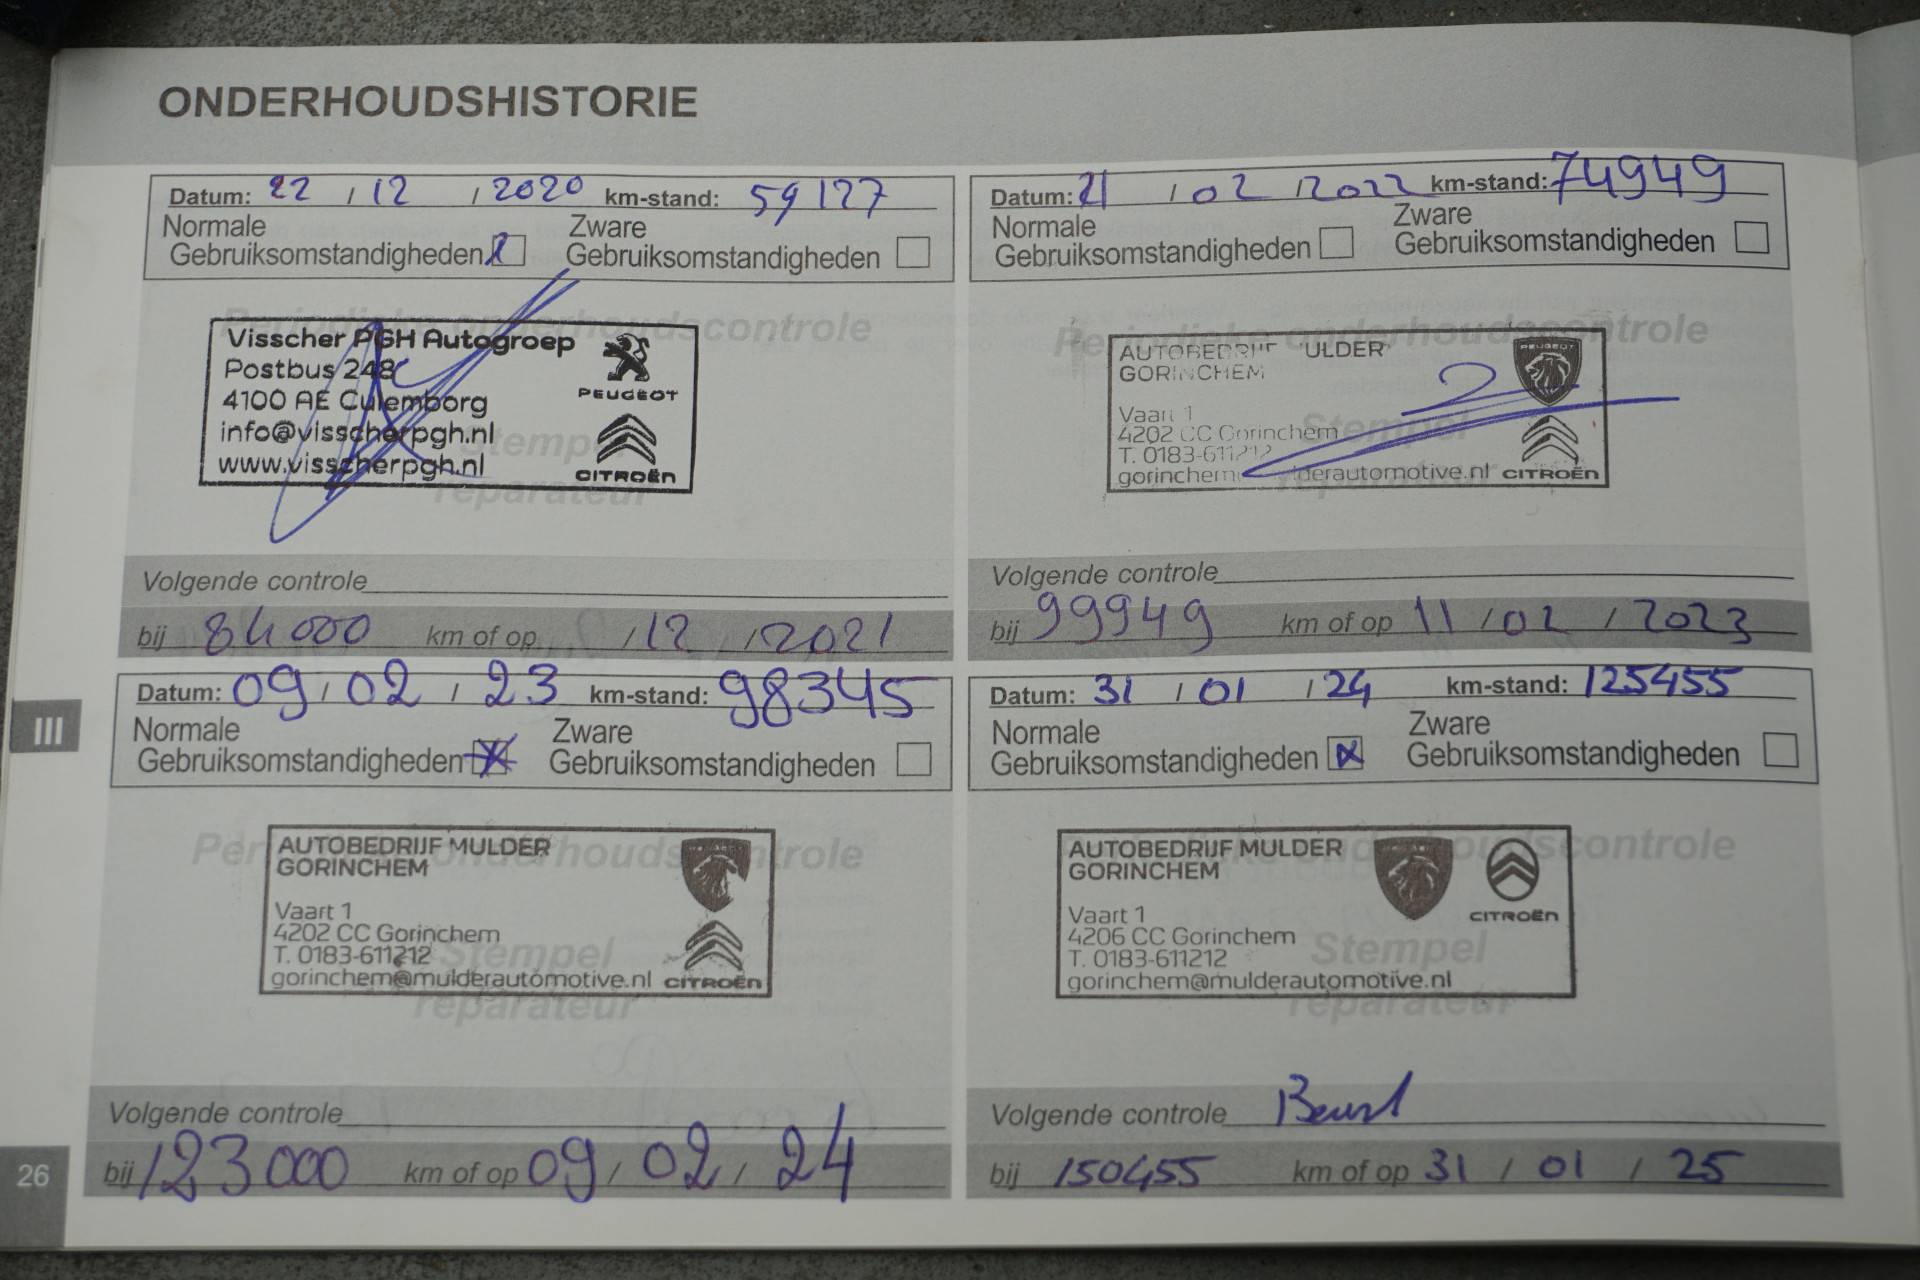 ONDERHOUDSHISTORIE
Datum: 22 / 12 / 2020 km-stand: 59127
Normale Zware
Gebruiksomstandigheden Gebruiksomstandigheden
Periodieke onderhoudscontrole
Visscher PGH Autogroep
Postbus 248
4100 AE Culemborg
info@visscherpgh.nl
www.visscherpgh.nl
PEUGEOT
CITROËN
Stempel
reparateur
Volgende controle
bij 84000 km of op / 12 / 2021
Datum: 21 / 02 / 2022 km-stand: 74949
Normale Zware
Gebruiksomstandigheden Gebruiksomstandigheden
Periodieke onderhoudscontrole
AUTOBEDRIJF ULDER
GORINCHEM
Vaart 1
4202 CC Gorinchem
T. 0183-611212
gorinchem lderautomotive.nl
PEUGEOT
CITROËN
Stempel
reparateur
Volgende controle
bij 99949 km of op 11 / 02 / 2023
Datum: 09 / 02 / 23 km-stand: 98345
Normale Zware
Gebruiksomstandigheden Gebruiksomstandigheden
Periodieke onderhoudscontrole
AUTOBEDRIJF MULDER
GORINCHEM
Vaart 1
4202 CC Gorinchem
T. 0183-611212
gorinchem@mulderautomotive.nl
CITROËN
Stempel
reparateur
Volgende controle
bij 123000 km of op 09 / 02 / 24
Datum: 31 / 01 / 24 km-stand: 125455
Normale Zware
Gebruiksomstandigheden Gebruiksomstandigheden
Periodieke onderhoudscontrole
AUTOBEDRIJF MULDER
GORINCHEM
Vaart 1
4206 CC Gorinchem
T. 0183-611212
gorinchem@mulderautomotive.nl
CITROËN
Stempel
reparateur
Volgende controle
bij 150455 km of op 31 / 01 / 25
III
26